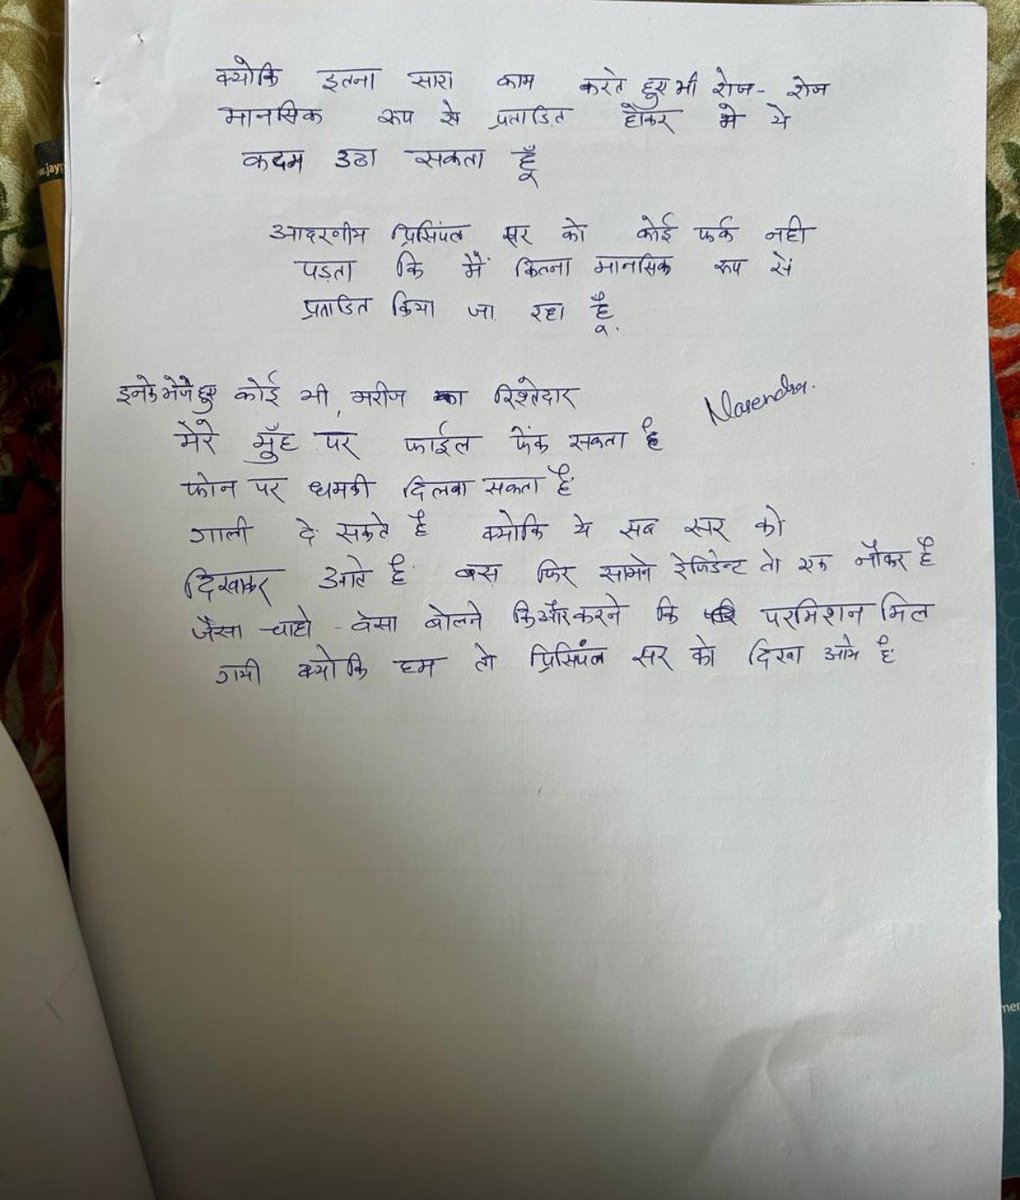 क्योकि इतना सारा काम करते हुए भी रोज - रोज
मानसिक रूप से प्रताडित होकर मे ये
कदम उठा सकता हूँ
आदरनीय प्रिसिंपल सर को कोई फर्क नही
पड़ता कि मैं कितना मानसिक रूप से
प्रताडित किया जा रहा हूँ.
इनके भेजे हुए कोई भी मरीज का रिश्तेदार
Narendra.
मेरे मुँह पर फाईल फेंक सकता है
फोन पर धमकी दिलवा सकता है
गाली दे सकते है क्योकि ये सब सर को
दिखाकर आते है बस फिर सामने रेजिडेन्ट तो एक नौकर है
जैसा चाहो - वैसा बोलने कि और करने कि परमिशन मिल
गयी क्योकि हम तो प्रिसिपंल सर को दिखा आये है